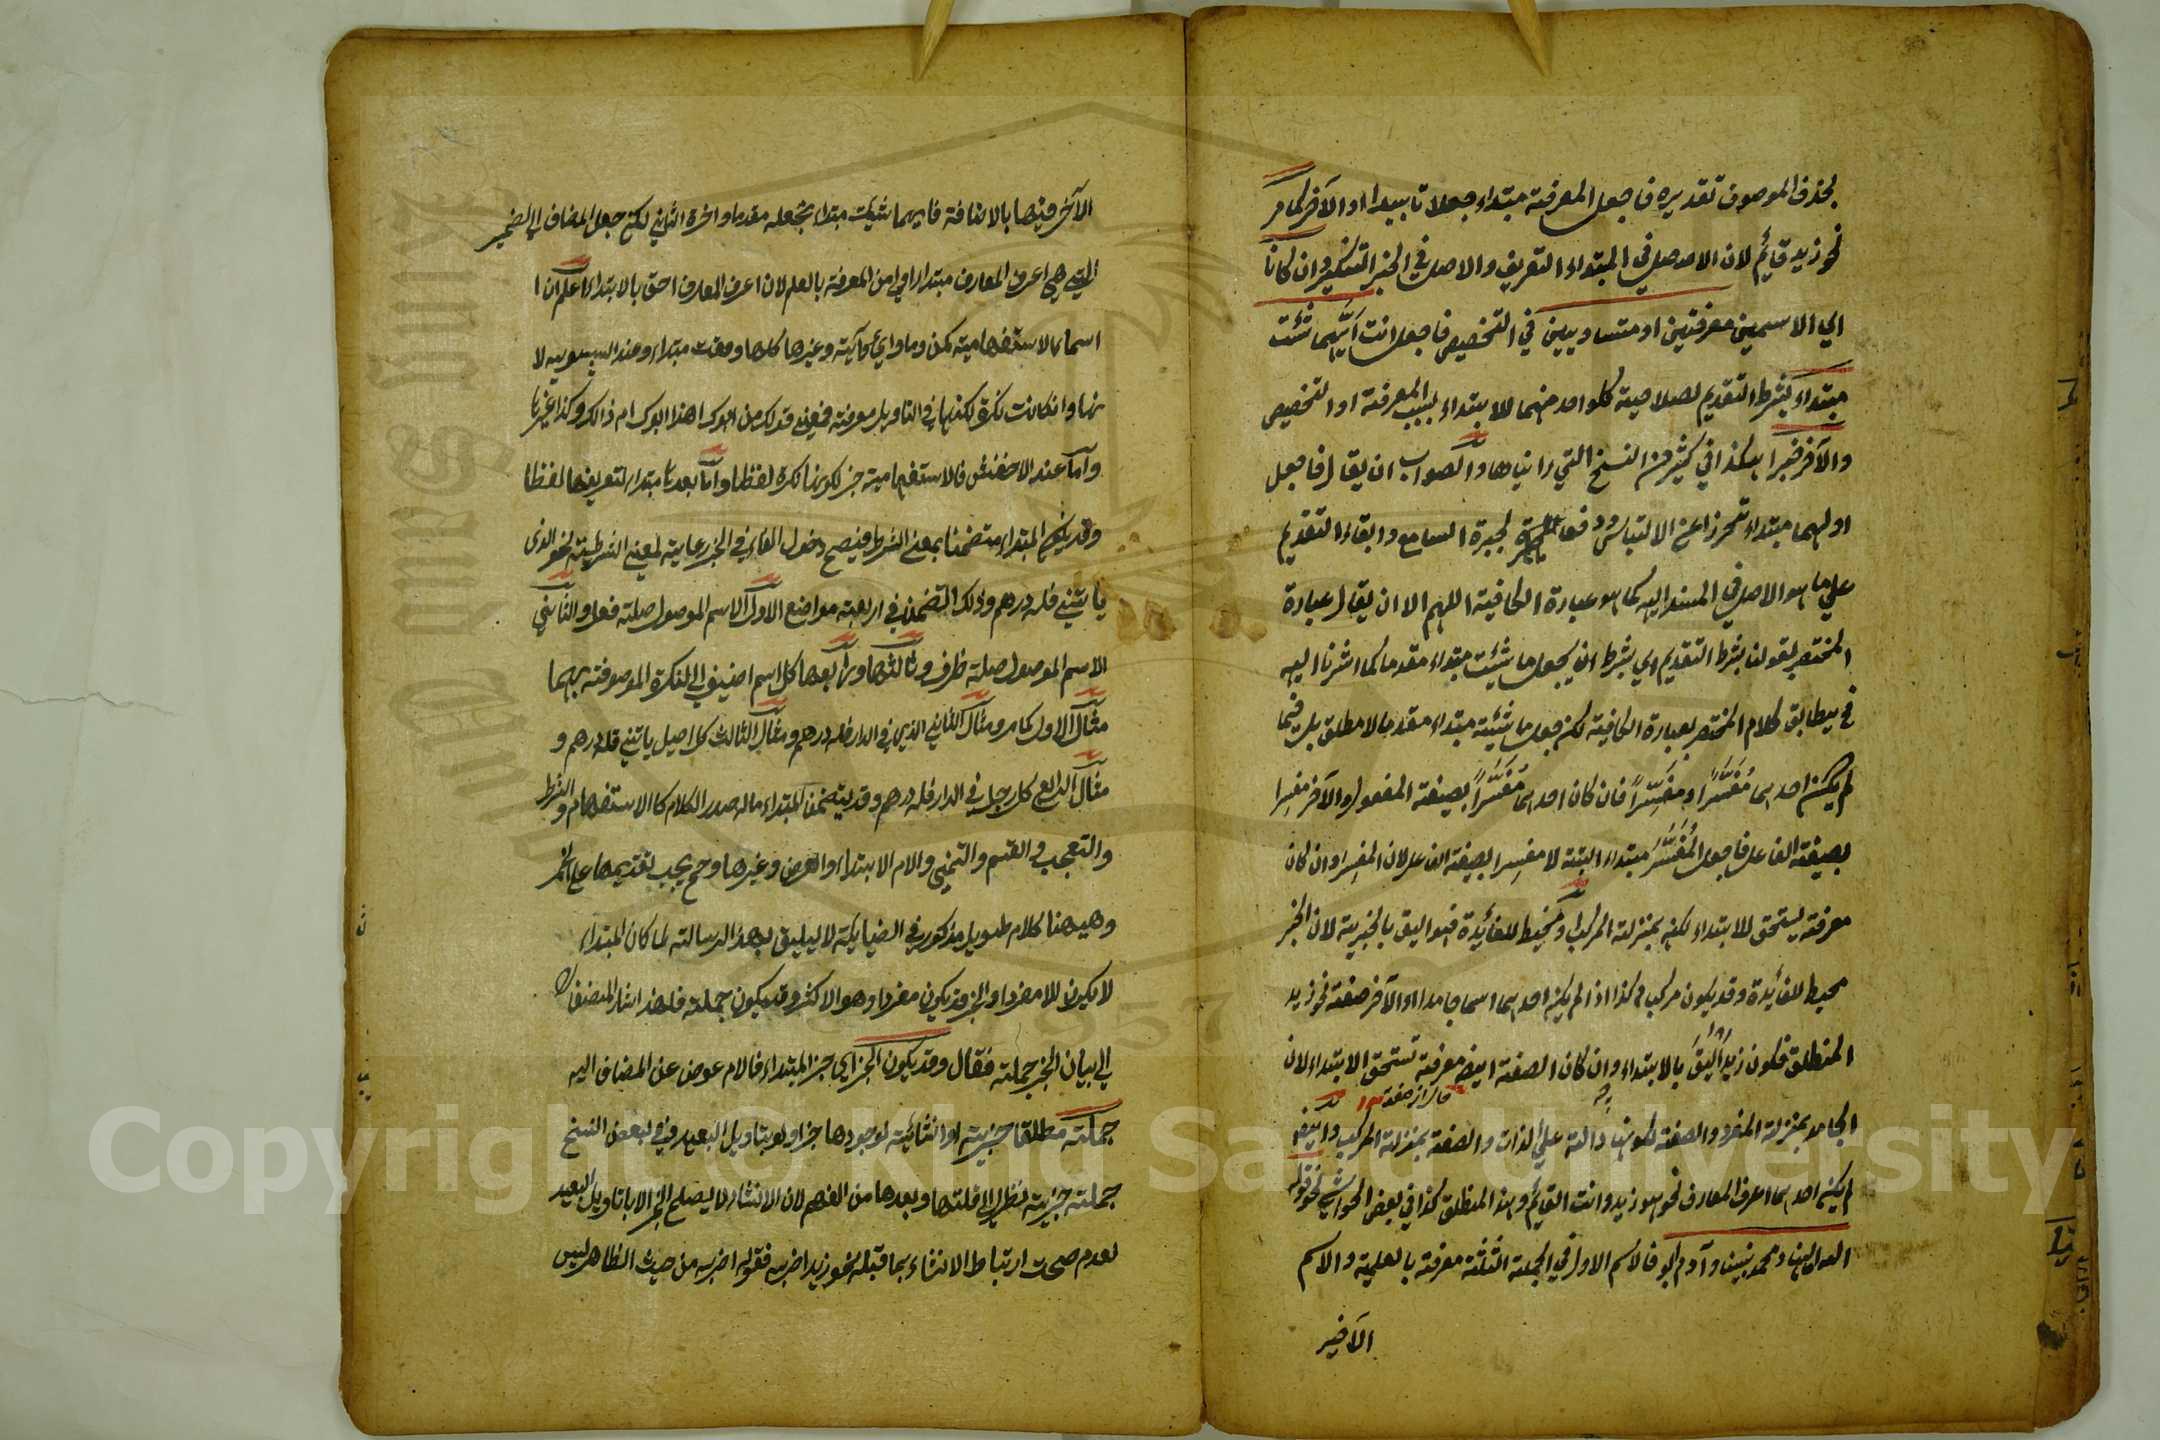 بحذف الموصوف تقديره فاجعل المعرفة مبتداء جعلا تابيدا و الآخر كما مر
نحو زيد قائم لان الاصل في المبتداء التعريف والاصل في الخبر التنكير وان كانا
اي الاسمين معرفتين او متساويين في التخصيص فاجعل انت ايهما شئت
مبتداء بشرط التقديم لصلاحية كلواحد منهما للابتداء بسبب المعرفة او التخصيص
والآخر خبرا هكذا في كثير من النسخ التي رايناها والصواب ان يقال فاجعل
اولهما مبتداء تحرزا عن الالتباس ودفعا لحيرة السامع وابقاء التقديم
علي ما هو الاصل في المسند اليه كما هو عبارة الكافية اللهم الا ان يقال عبارة
المختصر بقوله بشرط التقديم اي بشرط ان يجعل ما شئت مبتداء مقدما كما اشرنا اليه
فح يطابق كلام المختصر بعبارة الكافية لكن جعل ما شئته مبتداء مقدما لا مطلق بل فيما
لم يكن احدهما مُفَسَّرًا ومفسِّرًا فان كان احدهما مُفَسَّرًا بصيغة المفعول والآخر مفسِرا
بصيغة الفاعل فاجعل المُفَسَّرَ مبتداء البتة لا مفسِرا بصيغة الفاعل لان المفسِر وان كان
معرفة يستحق للابتداء لكنه بمنزلة المركب ومحيط للفائدة فهو اليق بالخبرية لان الخبر
محيط للفائدة وقد يكون مركب وكذا اذا لم يكن احدهما اسما جامدا والآخر صفة نحو زيد
المنطلق فكون زيد أليَقَ بالابتداء وان كان الصفة ايضا معرفة تستحق الابتداء لان
الجامد بمنزلة المفرد والصفة لكونها دالة علي الذات والصفة بمنزلة المركب وايضا
لم يكن احدهما اعرف المعارف نحو هو زيد وانت القائم وهذا المنطلق كذا في بعض الحواشي نحو قوله
الله الهنا ومحمد نبينا وآدم ابو فالاسم الاول في الجملة الثلثة معرفة بالعلمية والاسم
الاخير
الآخر فيها بالاضافة فايهما شئت مبتداء تجعله مقدما واخره الثاني لكن جعل المضاف الي الضمير
التي هي اعرف المعارف مبتداء اولي من المعرفة بالعلم لان اعرف المعارف احق بالابتداء اعلم ان ا
اسماء الاستفهامية كمن وما واي وآية وغيرها كلها وقعت مبتداء وعند السيبويه لا
نها وان كانت نكرة لكنها في التاويل معرفة فمعني قولك من ابوك اهذا ابوك ام ذالك وكذا غيرها
وآما عند الاخفش فالاستفهامية خبر لكونها نكرة لفظا وآما بعدها مبتداء لتعريفها لفظا
وقد يكون المبتداء متضمنا بمعني الشرط فيصح دخول الفاء في الخبر رعاية لمعني الشرطية نحو الذي
ياتيني فله درهم وذلك التضمن في اربعة مواضع الاول الاسم الموصول صلته فعل والثاني
الاسم الموصول صلته ظرف وثالثها ورابعها كل اسم اضيف الي النكرة الموصوفة بهما
مثال الاول كما مر ومثال الثاني الذي في الدار فله درهم ومثال الثالث كل رجل ياتيني فله درهم و
مثال الرابع كل رجل في الدار فله درهم وقد يتضمن المبتداء ما له صدر الكلام كا الاستفهام والشرط
والتعجب والقسم والتمني والام الابتداء والعرض وغيرها وح يجب تقديمها علي الخبر
وهيهنا كلام طويل مذكور في الضيائية لا يليق بهذه الرسالة لما كان المبتداء
لا يكون الا مفردا والخبر قد يكون مفردا وهو الاكثر وقد يكون جملة فلهذا اشار المصنف
الي بيان الخبر جملة فقال وقد يكون الخبر اي خبر المبتداء فالام عوض عن المضاف اليه
جملة مطلقا خبرية او انشائية لوجودها خبرا ولو بتاويل البعيد وفي بعض النسخ
جملة خبرية نظرا الي قلتها وبعدها من الفهم لان الانشاء لا يصلح الخبر الا بتاويل البعيد
لعدم صحت ارتباط الانشاء بما قبله نحو زيد اضربه فقوله اضربه من حيث الظاهر ليس
Copyright © King Saud University
1957